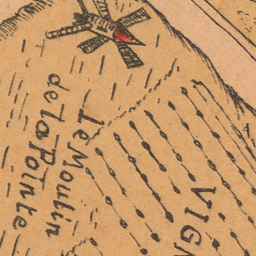 Le Moulin
de la Pointe
VIGN